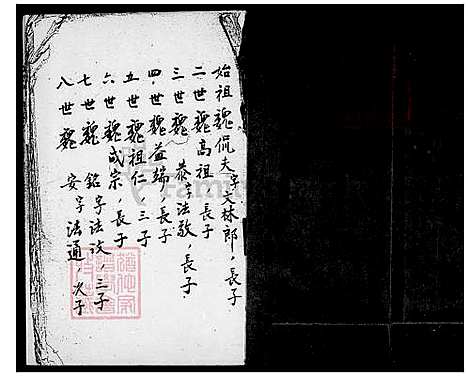 始祖魏侃夫字文林郎，長子
二世魏高祖 長子
三世魏 泰字法敬，長子
四世魏益端，長子
五世魏祖仁，三子
六世魏成宗，長子
七世魏 銘字法政，三子
八世魏 安字法通，次子